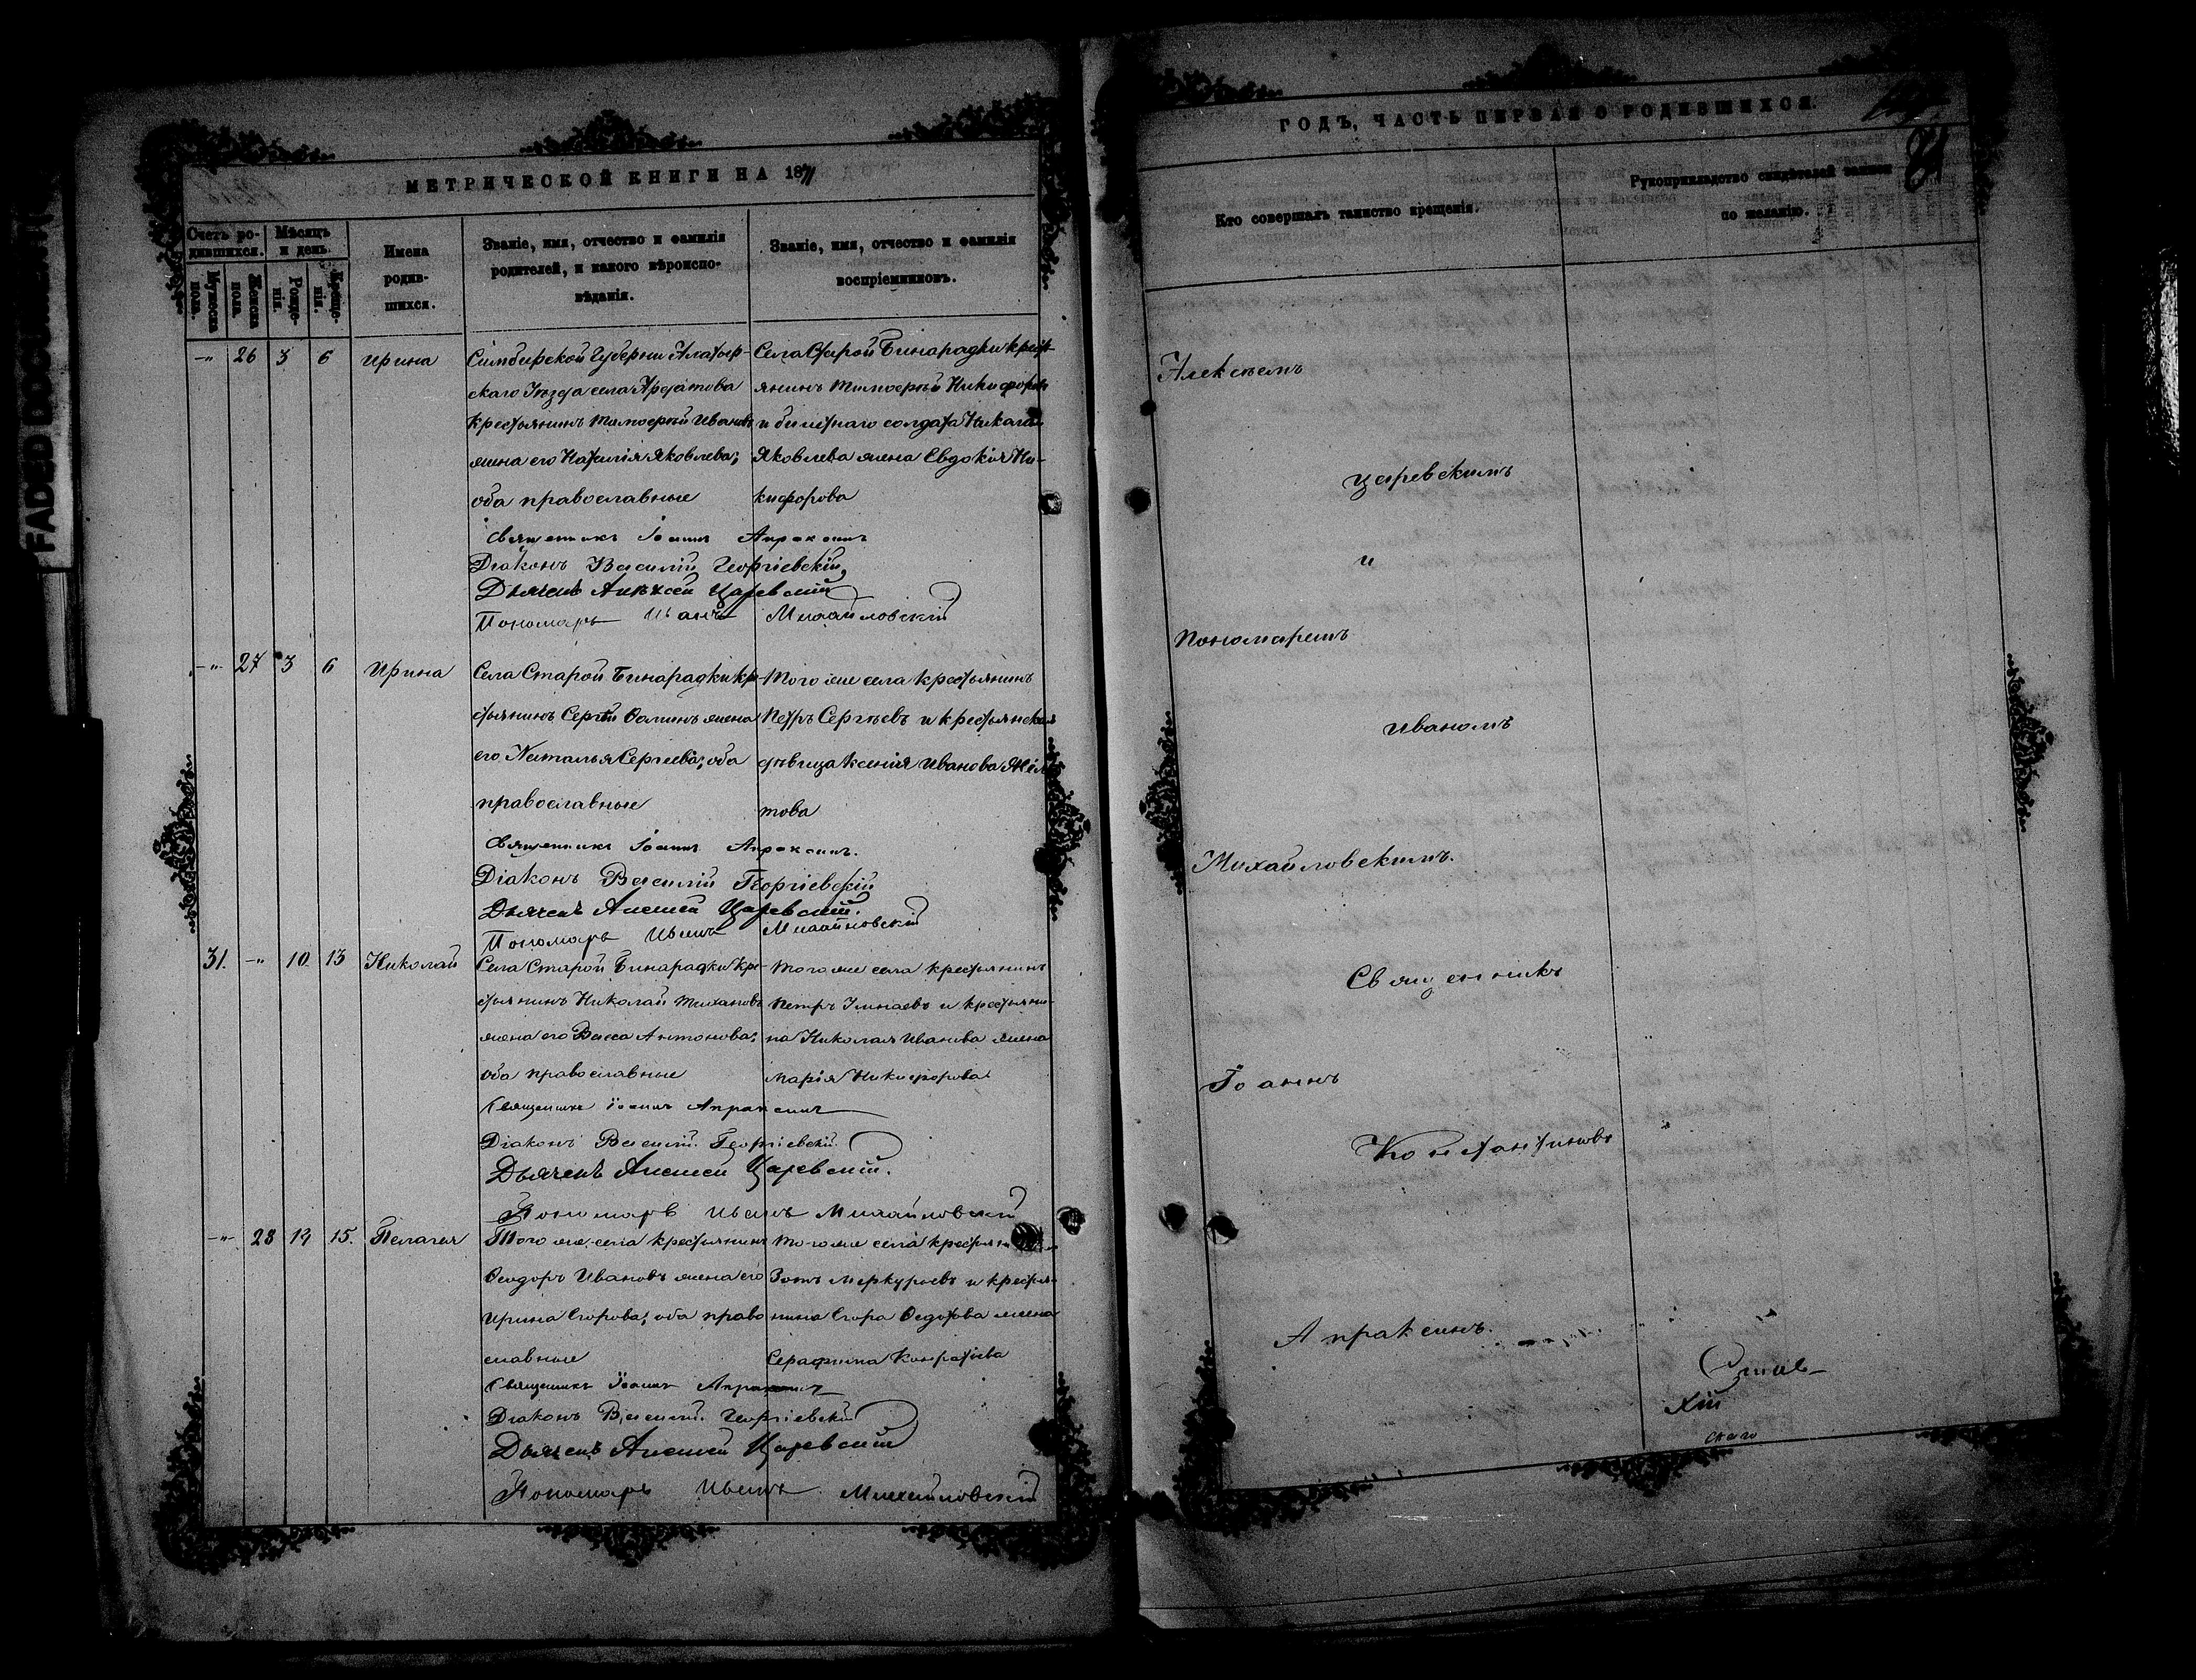 FADED DOCUMENT
МЕТРИЧЕСКОЙ КНИГИ НА 1871
Счетъ ро-
дившихся.
Мѣсяцъ
и день
Мужеска
пола.
Женска
пола.
Рожде-
нія.
Креще-
нія.
Имена
родив-
шихся.
Званіе, имя, отчество и фамилія
родителей, и какого вѣроиспо-
вѣданія.
Званіе, имя, отчество и фамилія
воспріемниковъ.
-"- 26 3 6 Ирина
Симбирской Губерни Алатыр-
скаго Уѣзда села Ардатова
крестьянинъ Тимофей Ивановъ
жена его Наталія Яковлева;
оба православные
Села Старой Бинарадки крест-
янинъ Тимофей Никифоровъ
и билетнаго солдата
Яковлева жена Евдокія Ни-
кифорова
Священникъ Іоаннъ Апраксинъ
Діаконъ Василій Георгіевскій
Дьячекъ Алексей Царевскій
Пономарь Иванъ Михайловскій
-"- 27 3 6 Ирина
Села Старой Бинарадки кр-
стьянинъ Сергѣй Ѳоминъ жена
его Наталья Сергеева; оба
православные
Того же села крестьянинъ
Петръ Сергѣевъ и крестьянская
дѣвица Ксенія Иванова
това
Священникъ Іоаннъ Апраксинъ.
Діаконъ Василій Георгіевскій
Дьячекъ Алексей Царевскій.
Пономарь Иванъ Михайловскій
31. -"- 10 13 Николай
Села Старой Бинарадки кре-
стьянинъ Николай Тихановъ
жена его Васса Антонова;
оба православные
Того же села крестьянинъ
Петръ и крестьяни-
на Николая Иванова жена
Марія Никифорова
Священникъ Іоаннъ Апраксинъ
Діаконъ Василій Георгіевскій
Дьячекъ Алексей Царевскій.
Пономарь Иванъ Михайловскій
-"- 28 14 15. Пелагея
Того же села крестьянинъ
Ѳеодоръ Ивановъ жена его
Ирина Егорова; оба право
славные
Того же села
Зотъ Меркурьевъ и крестья-
нина Егора Ѳедотова жена
Серафима Кондратіева
Священникъ Іоаннъ Апраксинъ
Діаконъ Василій Георгіевскій
Дьячекъ Алексей Царевскій
Пономарь Иванъ Михайловскій
ГОДЪ, ЧАСТЬ ПЕРВАЯ О РОДИВШИХСЯ.
Кто совершалъ таинство крещенія.
Рукоприкладство свидѣтелей записи
по желанію.
Алексѣемъ
Царевскимъ
и
Пономаремъ
Иваномъ
Михайловскимъ.
Священникъ
Іоаннъ
Константиновъ
Апраксинъ.